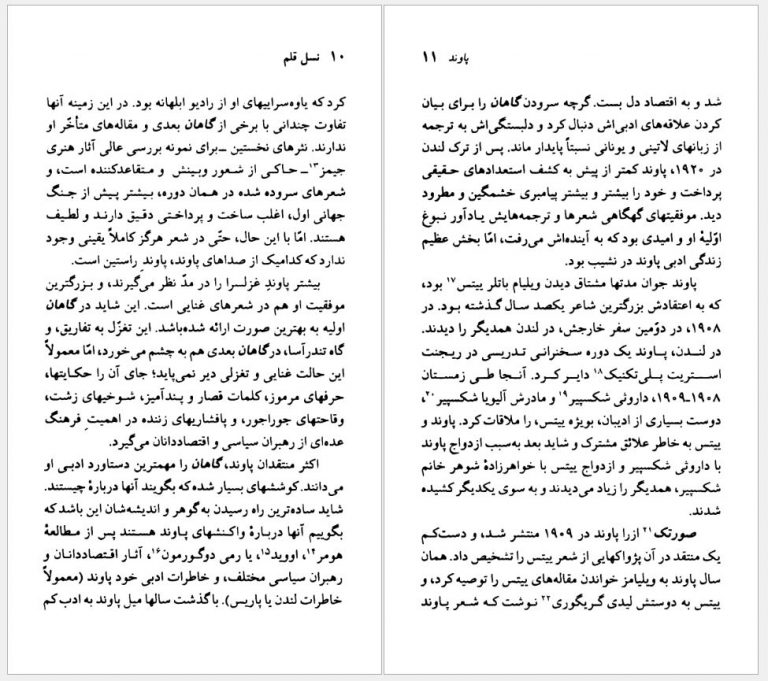 ۱۰ نسل قلم
کرد که یاوه‌سراییهای او از رادیو ابلهانه بود. در این زمینه آنها
تفاوت چندانی با برخی از گاهان بعدی و مقاله‌های متأخّر او
ندارند. نثرهای نخستین ـ برای نمونه بررسی عالی آثار هنری
جیمز۱۳ـ حاکی از شعور وبینش و متقاعدکننده است، و
شعرهای سروده شده در همان دوره، بیشتر پیش از جنگ
جهانی اول، اغلب ساخت و پرداختی دقیق دارند و لطیف
هستند. امّا با این حال، حتّی در شعر هرگز کاملاً یقینی وجود
ندارد که کدامیک از صداهای پاوند، پاوندِ راستین است.
بیشتر پاوندِ غزلسرا را در مدّ نظر می‌گیرند، و بزرگترین
موفقیت او هم در شعرهای غنایی است. این شاید در گاهان
اولیه به بهترین صورت ارائه شده‌باشد. این تغزّل به تفاریق، و
گاه تندرآسا، در گاهان بعدی هم به چشم می‌خورد، امّا معمولاً
این حالت غنایی و تغزلی دیر نمی‌پاید؛ جای آن را حکایتها،
حرفهای مرموز، کلمات قصار و پندآمیز، شوخیهای زشت،
وقاحتهای جوراجور، و پافشاریهای زننده در اهمیتِ فرهنگ
عده‌ای از رهبران سیاسی و اقتصاددانان می‌گیرد.
اکثر منتقدان پاوند، گاهان را مهمترین دستاورد ادبی او
می‌دانند. کوششهای بسیار شده که بگویند آنها دربارهٔ چیستند.
شاید ساده‌ترین راه رسیدن به گوهر و اندیشه‌شان این باشد که
بگوییم آنها دربارهٔ واکنشهای پاوند هستند پس از مطالعهٔ
هومر۱۴، اووید۱۵، یا رمی دوگورمون۱۶، آثار اقتصاددانان و
رهبران سیاسی مختلف، و خاطرات ادبی خود پاوند (معمولاً
خاطرات لندن یا پاریس). با گذشت سالها میل پاوند به ادب کم
پاوند ۱۱
شد و به اقتصاد دل بست. گرچه سرودن گاهان را برای بیان
کردن علاقه‌های ادبی‌اش دنبال کرد و دلبستگی‌اش به ترجمه
از زبانهای لاتینی و یونانی نسبتاً پایدار ماند. پس از ترک لندن
در ۱۹۲۰، پاوند کمتر از پیش به کشف استعدادهای حقیقی
پرداخت و خود را بیشتر و بیشتر پیامبری خشمگین و مطرود
دید. موفقیتهای گهگاهی شعرها و ترجمه‌هایش یادآور نبوغ
اوّلیهٔ او و امیدی بود که به آینده‌اش می‌رفت، امّا بخش عظیم
زندگی ادبی پاوند در نشیب بود.
پاوند جوان مدتها مشتاق دیدن ویلیام باتلر ییتس۱۷ بود،
که به اعتقادش بزرگترین شاعر یکصد سال گذشته بود. در
۱۹۰۸، در دوّمین سفر خارجش، در لندن همدیگر را دیدند.
در لندن، پاوند یک دوره سخنرانی تدریسی در ریجنت
استریت پلی‌تکنیک۱۸ دایر کرد. آنجا طی زمستان
۱۹۰۸-۱۹۰۹، داروثی شکسپیر۱۹ و مادرش آلیویا شکسپیر۲۰،
دوست بسیاری از ادیبان، بویژه ییتس، را ملاقات کرد. پاوند و
ییتس به خاطر علائق مشترک و شاید بعد به‌سبب ازدواج پاوند
با داروثی شکسپیر و ازدواج ییتس با خواهرزادهٔ شوهر خانم
شکسپیر، همدیگر را زیاد می‌دیدند و به سوی یکدیگر کشیده
شدند.
صورتک۲۱ ازرا پاوند در ۱۹۰۹ منتشر شد، و دست‌کم
یک منتقد در آن پژواکهایی از شعر ییتس را تشخیص داد. همان
سال پاوند به ویلیامز خواندن مقاله‌های ییتس را توصیه کرد، و
ییتس به دوستش لیدی گریگوری۲۲ نوشت که شعر پاوند